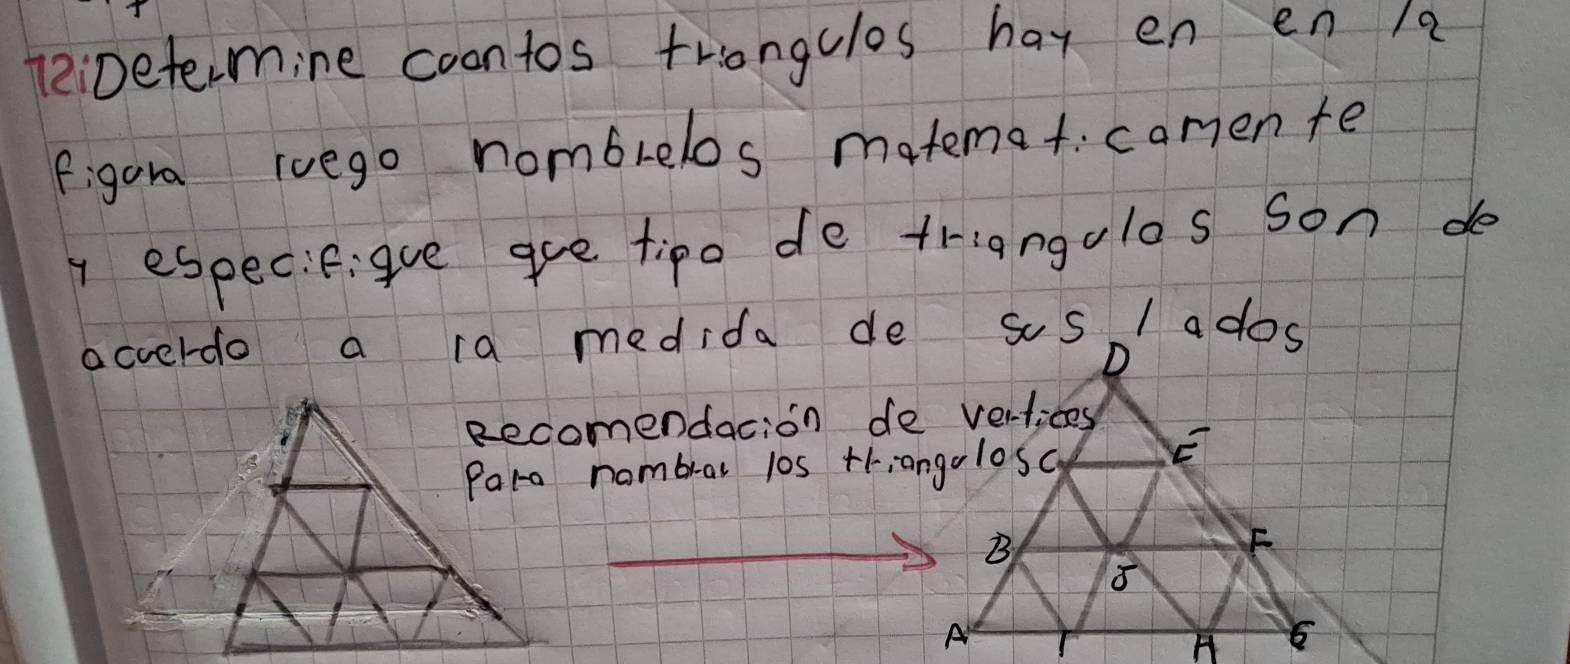 12: Determine coantos triangulos hay en en la
figura luego nombrelos matematicamente
y especifique que tipo de triangulos son de
acuerdo a la medida de sus lados
Recomendación de vertices
Para nombrar los triangulos
D
C E
B J F
A I H G